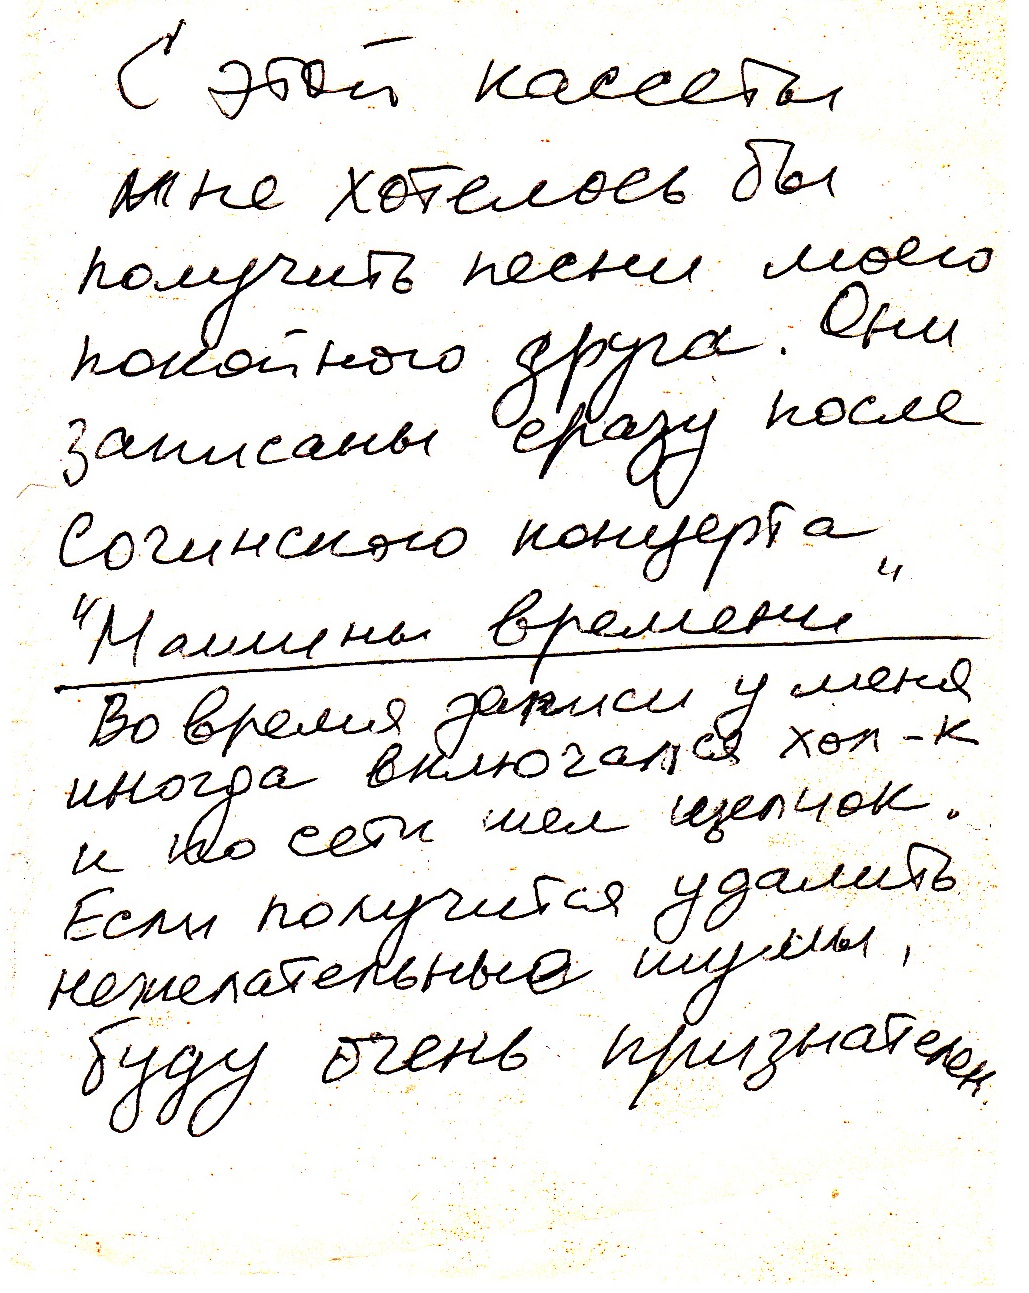 С этой кассеты
мне хотелось бы
получить песни моего
покойного друга. Они
записаны сразу после
Сочинского концерта
"Машины времени"
Во время записи у меня
иногда включался хол-к
и по сети шел щелчок.
Если получится удалить
нежелательные шумы,
буду очень признателен.